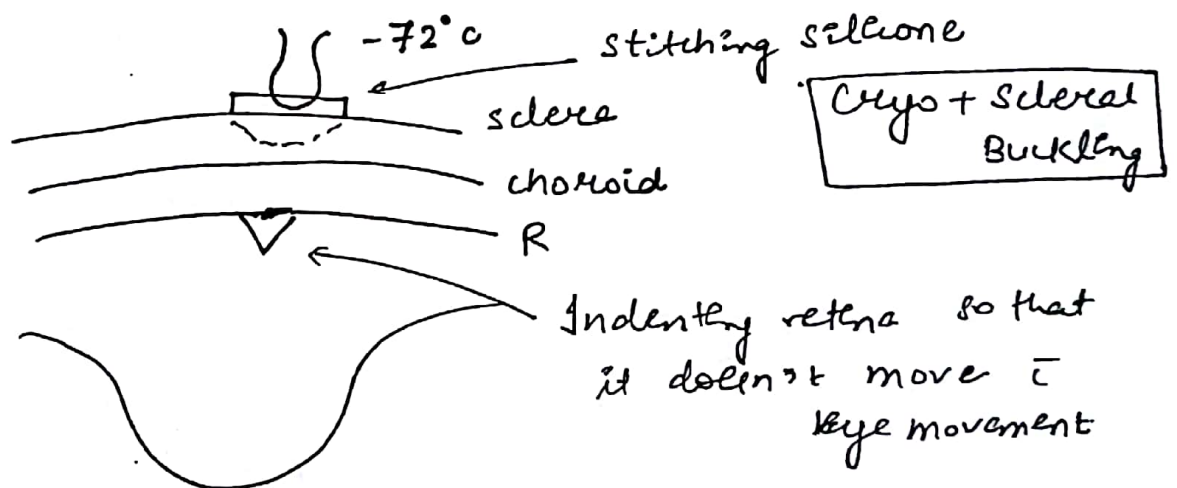 -72°c
stitching silicone
sclera
Cryo + Scleral
Buckling
choroid
R
Indenting retina so that
it doesn't move c̄
eye movement